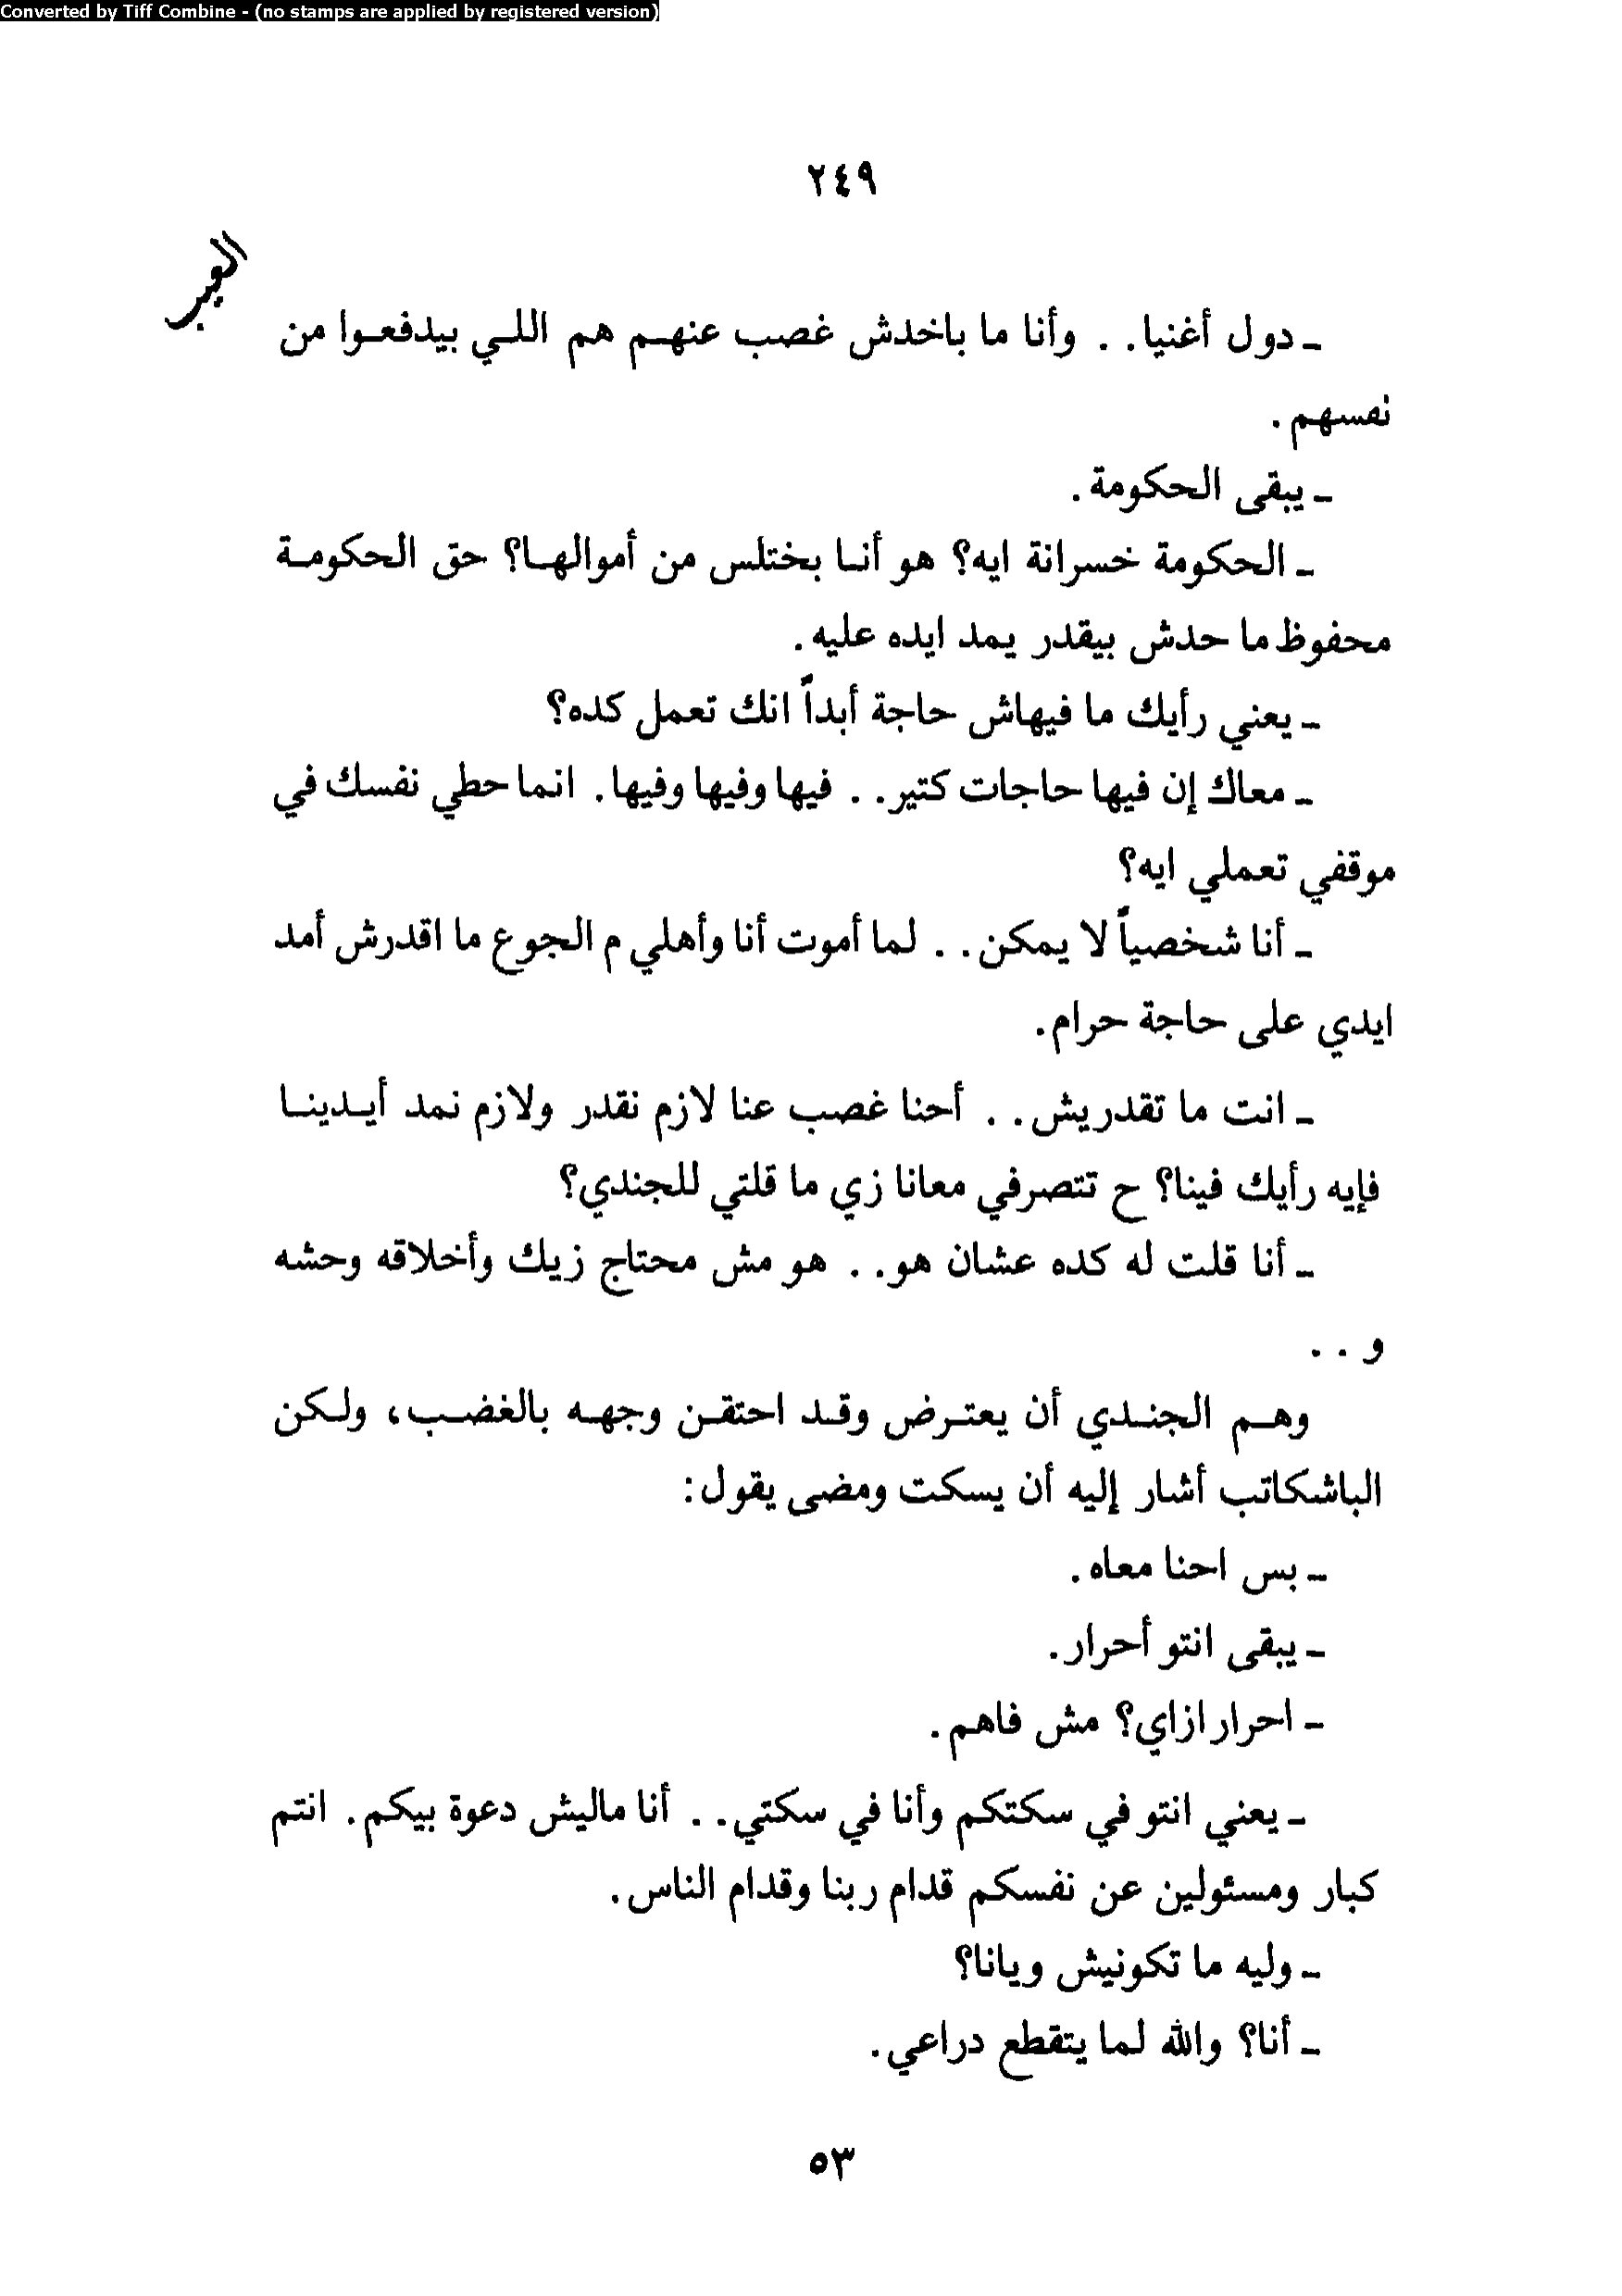 Converted by Tiff Combine - (no stamps are applied by registered version)
٢٤٩
العيب
ـ دول أغنيا. . وأنا ما باخدش غصب عنهم هم اللي بيدفعوا من
نفسهم.
ـ يبقى الحكومة.
ـ الحكومة خسرانة ايه؟ هو أنا بختلس من أموالها؟ حق الحكومة
محفوظ ما حدش بيقدر يمد ايده عليه.
ـ يعني رأيك ما فيهاش حاجة أبداً انك تعمل كده؟
ـ معاك إن فيها حاجات كتير. . فيها وفيها وفيها. انما حطي نفسك في
موقفي تعملي ايه؟
ـ أنا شخصياً لا يمكن. . لما أموت أنا وأهلي م الجوع ما اقدرش أمد
ايدي على حاجة حرام.
ـ انت ما تقدريش. . أحنا غصب عنا لازم نقدر ولازم نمد أيدينا
فإيه رأيك فينا؟ ح تتصرفي معانا زي ما قلتي للجندي؟
ـ أنا قلت له كده عشان هو. . هو مش محتاج زيك وأخلاقه وحشه
و . .
وهم الجندي أن يعترض وقد احتقن وجهه بالغضب، ولكن
الباشكاتب أشار إليه أن يسكت ومضى يقول:
ـ بس احنا معاه.
ـ يبقى انتو أحرار.
ـ احرار ازاي؟ مش فاهم.
ـ يعني انتو في سكتكم وأنا في سكتي. . أنا ماليش دعوة بيكم. انتم
كبار ومسئولين عن نفسكم قدام ربنا وقدام الناس.
ـ وليه ما تكونيش ويانا؟
ـ أنا؟ والله لما يتقطع دراعي.
٥٣